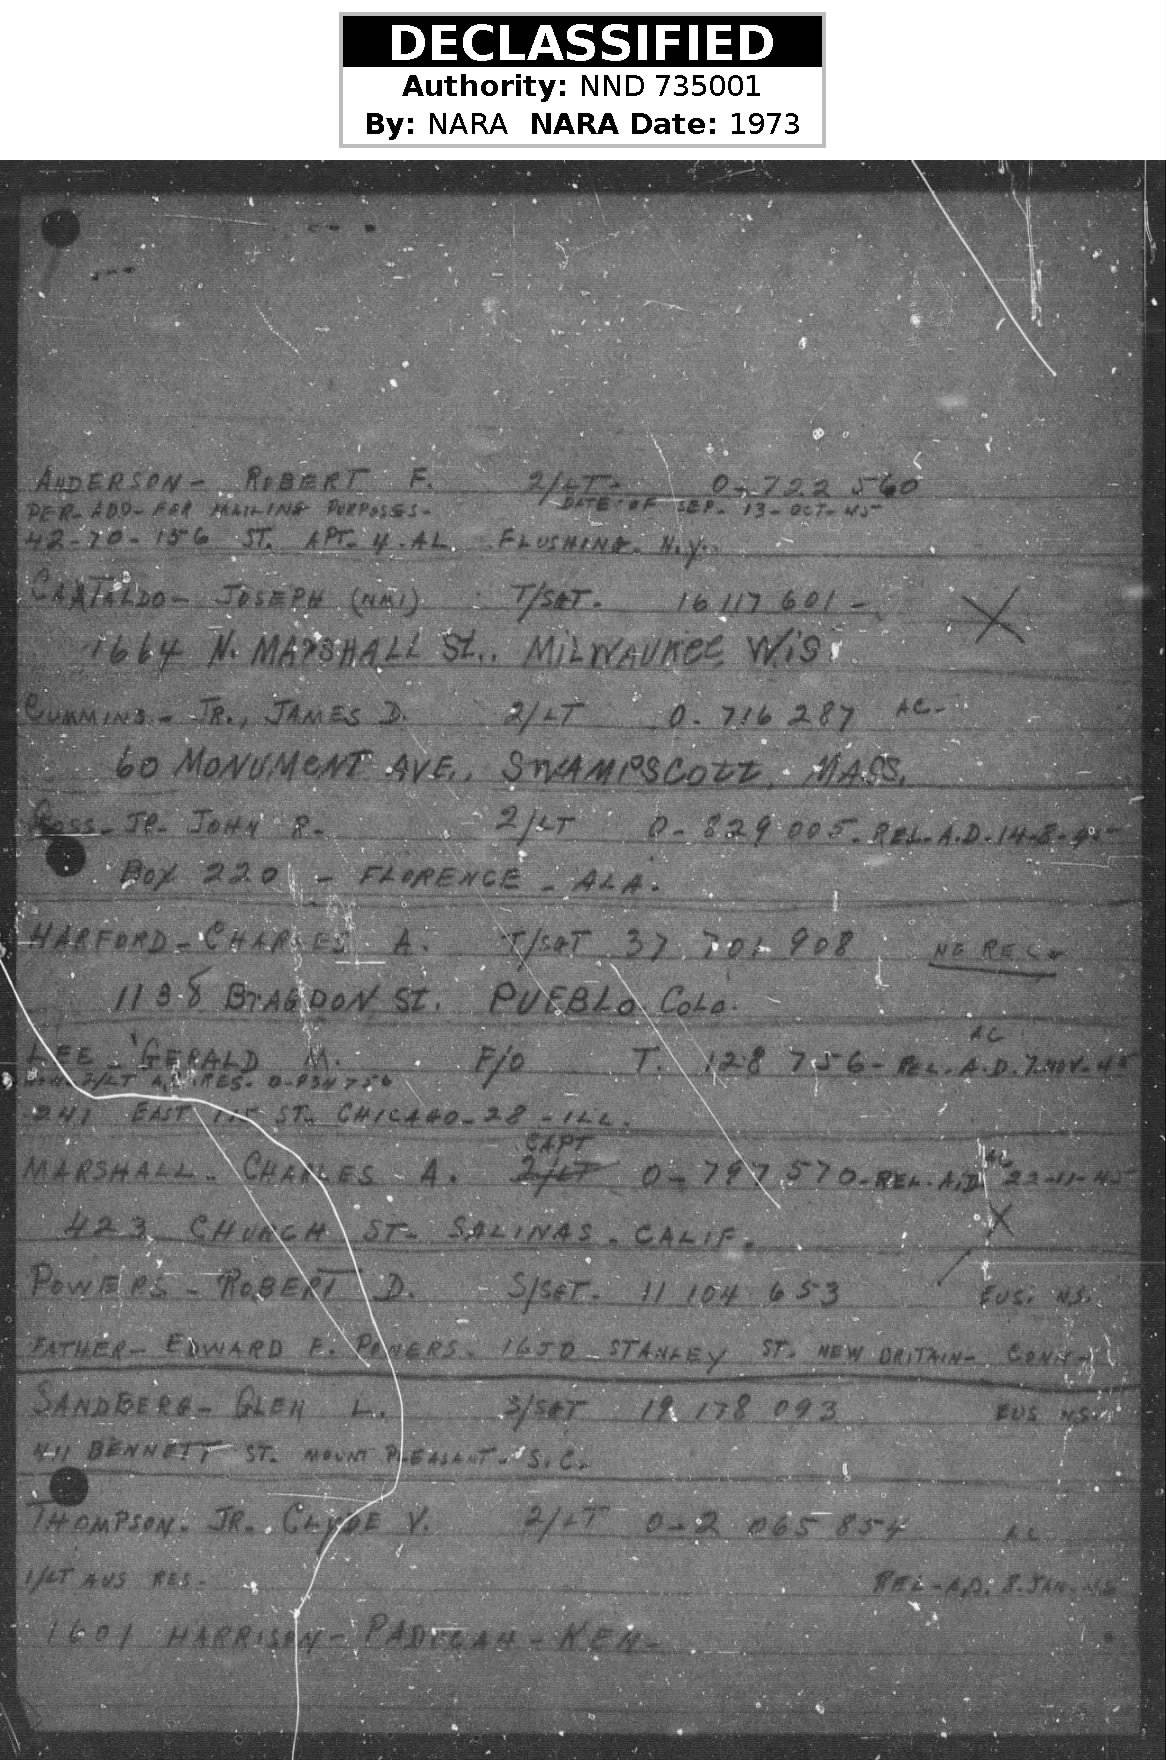 DECLASSIFIED
Authority: NND 735001
By: NARA NARA Date: 1973
ANDERSON- ROBERT F. 2/LT- 0-722 560
PER. ADD- FOR MAILING PURPOSES- DATE OF SEP. 13-OCT-45
42-70-156 ST. APT. 4.AL. FLUSHING. N.Y.
CASTALDO- JOSEPH (NMI) T/SGT. 16 117 601 -
1664 N. MARSHALL St., MILWAUKEE WIS.
CUMMINS- JR., JAMES D. 2/LT 0- 716 287 AC-
60 MONUMENT AVE., SWAMPSCOTT, MASS.
GOSS- JR- JOHN R. 2/LT 0- 829 005. REL.A.D.14-8-45
BOX 220 - FLORENCE - ALA.
HARFORD- CHARLES A. T/SGT 37 701 908 NG REC-
1138 BRAGDON St. PUEBLO. COLO.
AC
LEE - GERALD M. F/O T. 128 756- REL. A.D. 7.NOV-45
2/LT RES. 0-934756
241 EAST ST. CHICAGO-28-ILL.
CAPT AC
MARSHALL- CHARLES A. 2/LT 0-797 570-REL.A.D 22-11-45
423 CHURCH ST- SALINAS. CALIF.
POWERS - ROBERT D. S/SGT- 11 104 653 EUS. NS.
FATHER- EDWARD F. POWERS. 1650 STANLEY ST. NEW BRITAIN- CONN-
SANDBERG- GLEN L. S/SGT 19 178 093 EUS NS.
411 BENNETT ST. MOUNT PLEASANT. S.C.
THOMPSON. JR. CLYDE V. 2/LT 0-2 065 854 AC
1/LT AUS RES- REL-AD. 8-JAN-46
1601 HARRISON- PADUCAH- KEN-